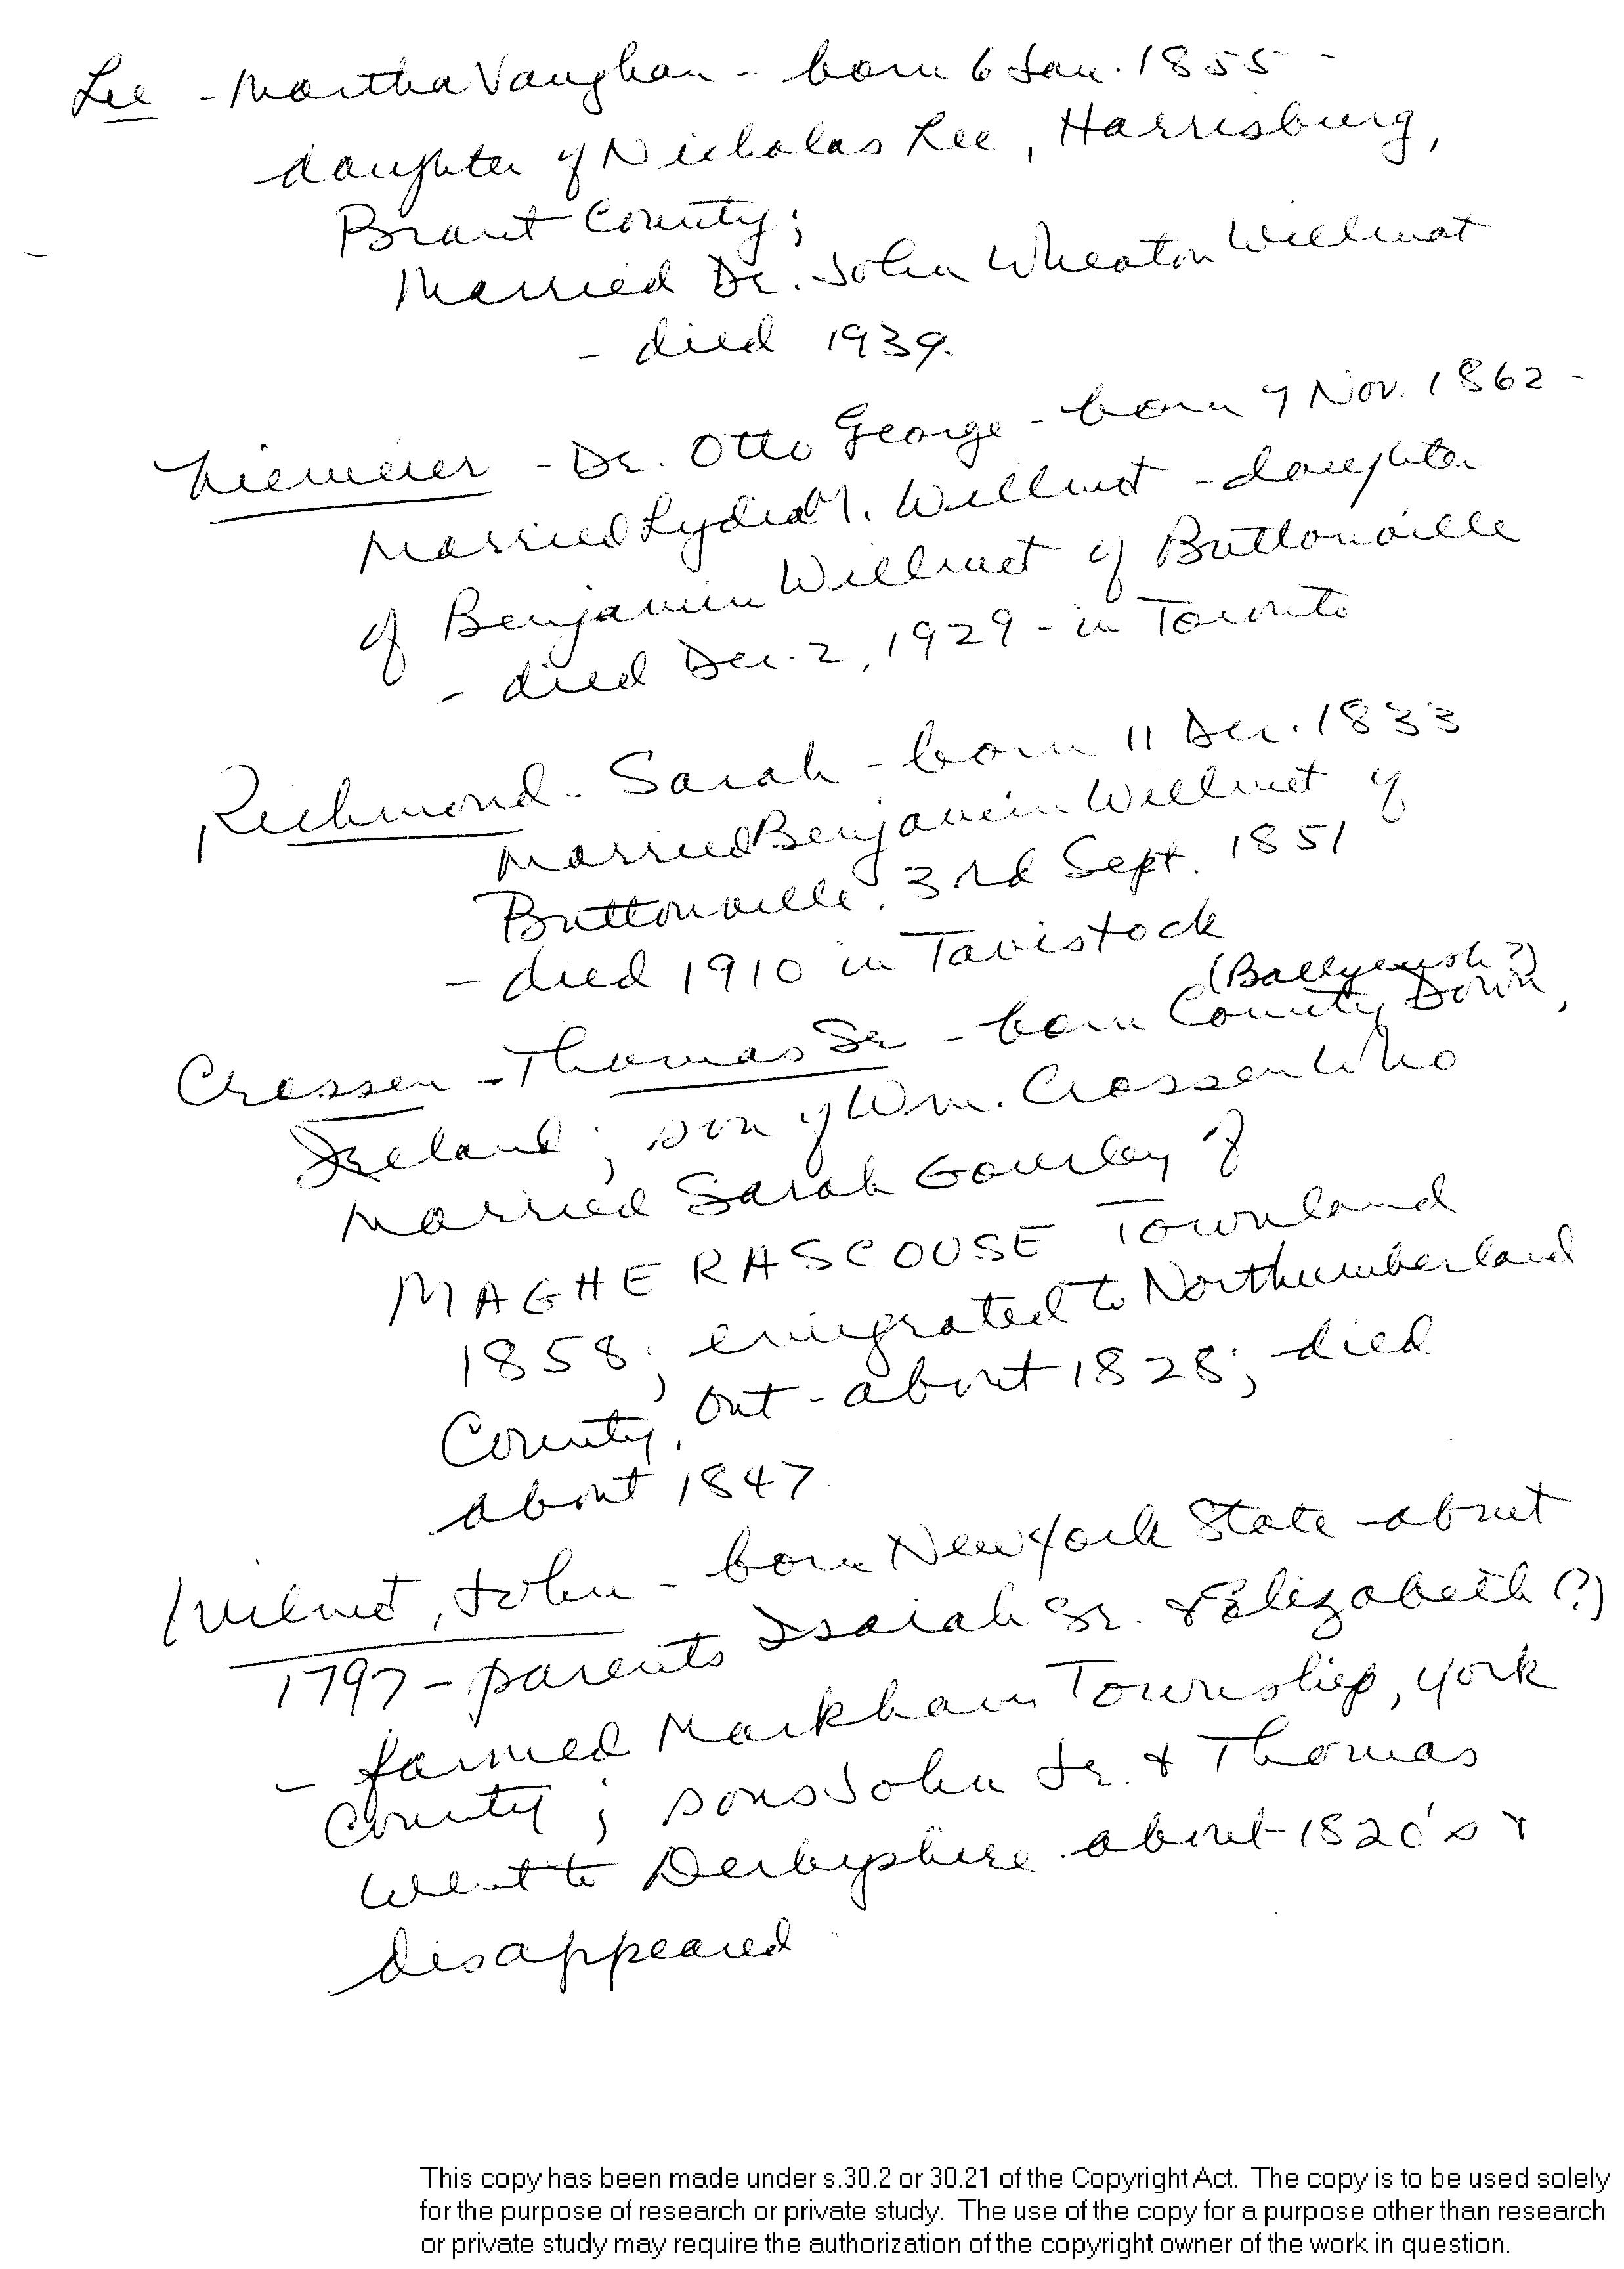 Lee - Martha Vaughan - born 6 Jan. 1855 -
daughter of Nicholas Lee, Harrisburg,
Brant County;
Married Dr. John Wheaton Willmot
- died 1939.
Niemeier - Dr. Otto George - born 7 Nov. 1862 -
Married Lydia M. Willmot - daughter
of Benjamin Willmot of Buttonville
- died Dec. 2, 1929 - in Toronto
Richmond - Sarah - born 11 Dec. 1833
Married Benjamin Willmot of
Buttonville. 3rd Sept. 1851
- died 1910 in Tavistock
Crossen - Thomas Sr - born County Down,
Ireland; son of Wm. Crossen who
Married Sarah Gourley of
MAGHERASCOUSE Townland
1858; emigrated to Northumberland
County, Ont - about 1828; died
about 1847
Wilmot, John - born New York State - about
1797 - parents Isaiah Sr. & Elizabeth (?)
- farmed Markham Township, York
County; sons John Jr. & Thomas
went to Derbyshire about 1820's &
disappeared
This copy has been made under s.30.2 or 30.21 of the Copyright Act. The copy is to be used solely
for the purpose of research or private study. The use of the copy for a purpose other than research
or private study may require the authorization of the copyright owner of the work in question.